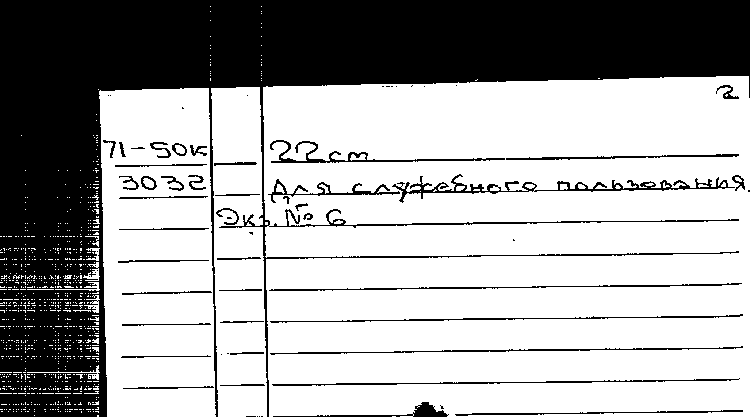 2
71-50к 22 cm.
3032 Для служебного пользования.
Экз. № 6.